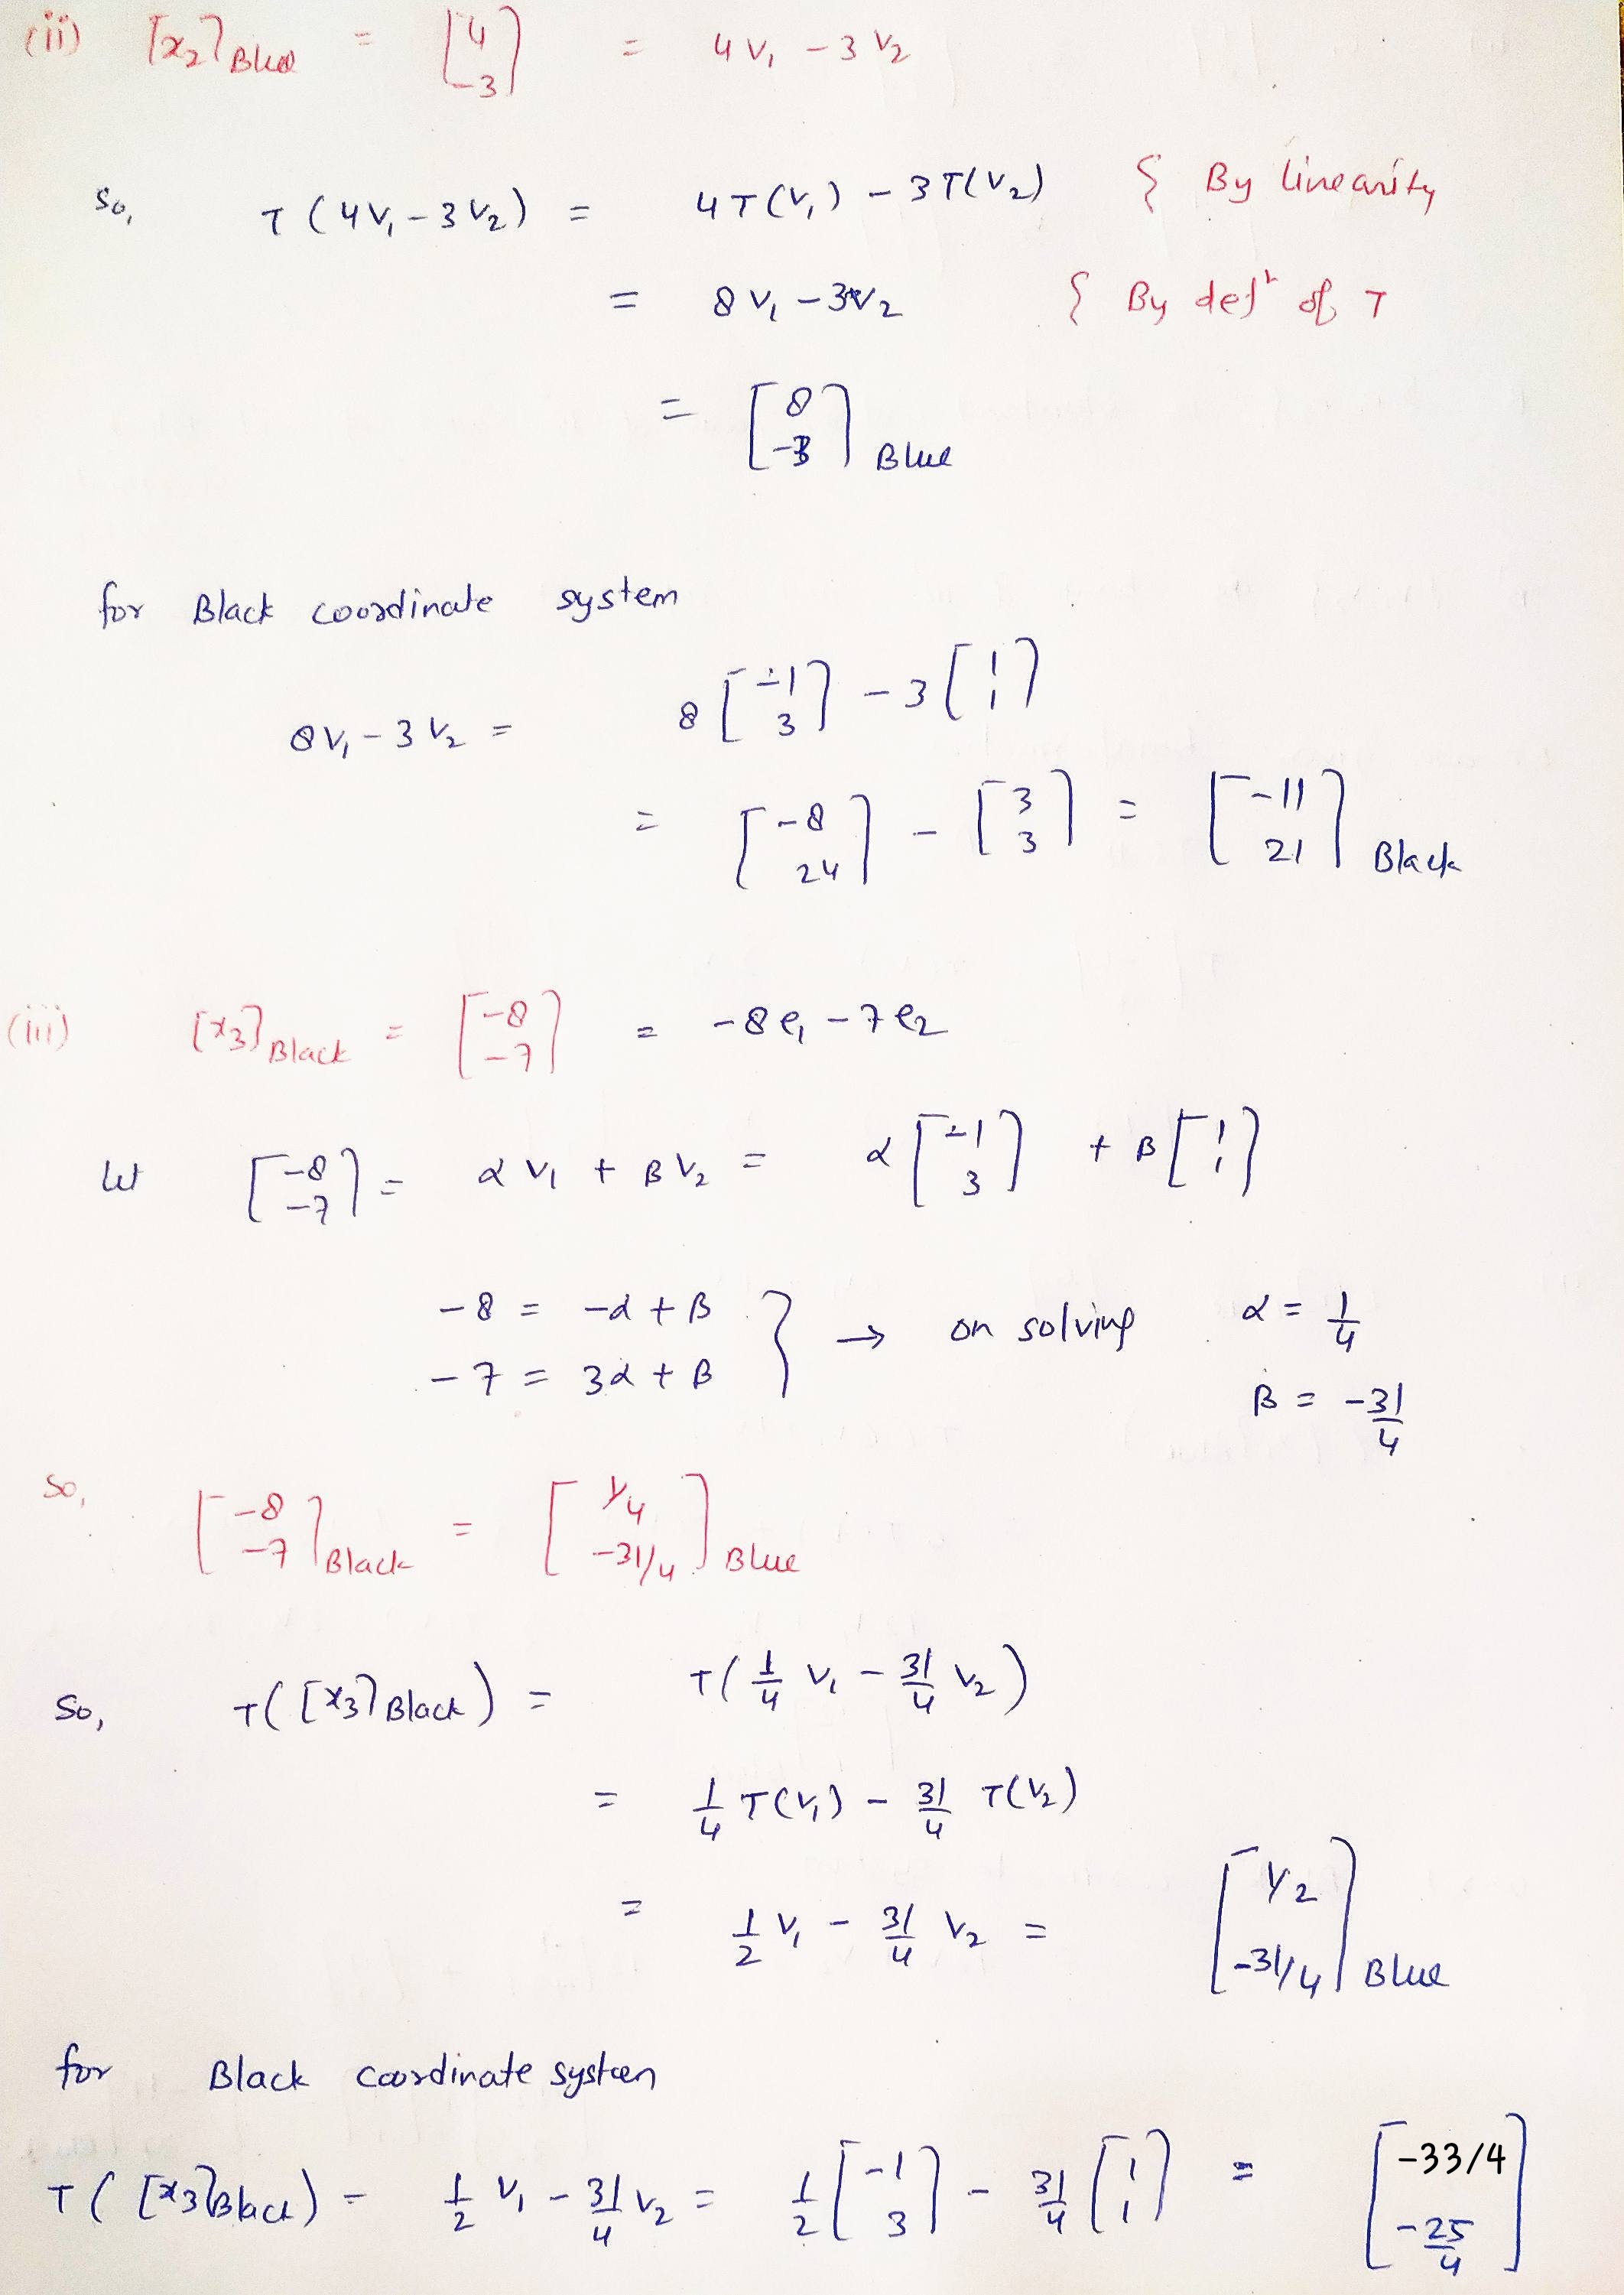 (ii) [x₂]Blue = [4 -3] = 4v₁ - 3v₂
So, T(4v₁ - 3v₂) = 4T(v₁) - 3T(v₂) { By linearity
= 8v₁ - 3v₂ { By defⁿ of T
= [8 -3] Blue
for Black coordinate system
8v₁ - 3v₂ = 8[-1 3] - 3[1 1]
= [-8 24] - [3 3] = [-11 21] Black
(iii) [x₃]Black = [-8 -7] = -8e₁ - 7e₂
let [-8 -7] = αv₁ + βv₂ = α[-1 3] + β[1 1]
-8 = -α + β
-7 = 3α + β } → on solving α = 1/4
β = -31/4
So, [-8 -7]Black = [1/4 -31/4] Blue
So, T([x₃]Black) = T(1/4 v₁ - 31/4 v₂)
= 1/4 T(v₁) - 31/4 T(v₂)
= 1/2 v₁ - 31/4 v₂ = [1/2 -31/4] Blue
for Black coordinate system
T([x₃]Black) = 1/2 v₁ - 31/4 v₂ = 1/2[-1 3] - 31/4[1 1] = [-33/4 -25/4]